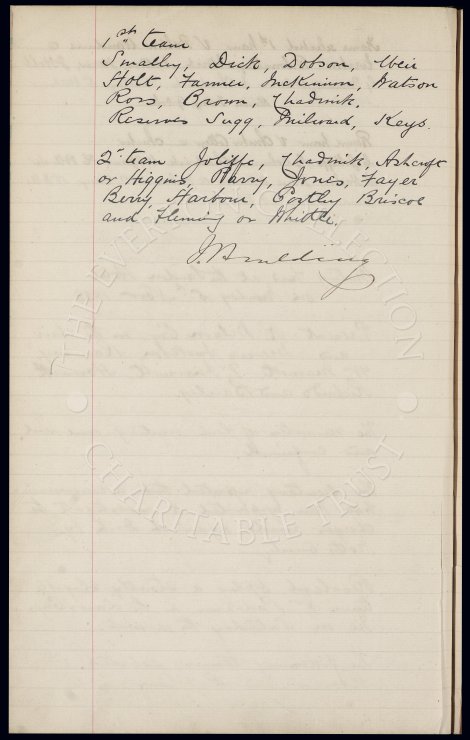 1st team
Smalley, Dick, Dobson, Weir
Holt, Farmer, McKinnon, Watson
Ross, Brown, Chadwick.
Reserves Sugg, Milward, Keys.
2nd team Joliffe, Chadwick, Ashcroft
or Higgins, Parry, Jones, Fayer
Berry, Harbour, Costley Briscoe
and Fleming or Whittle.
THE EVERTON COLLECTION
CHARITABLE TRUST